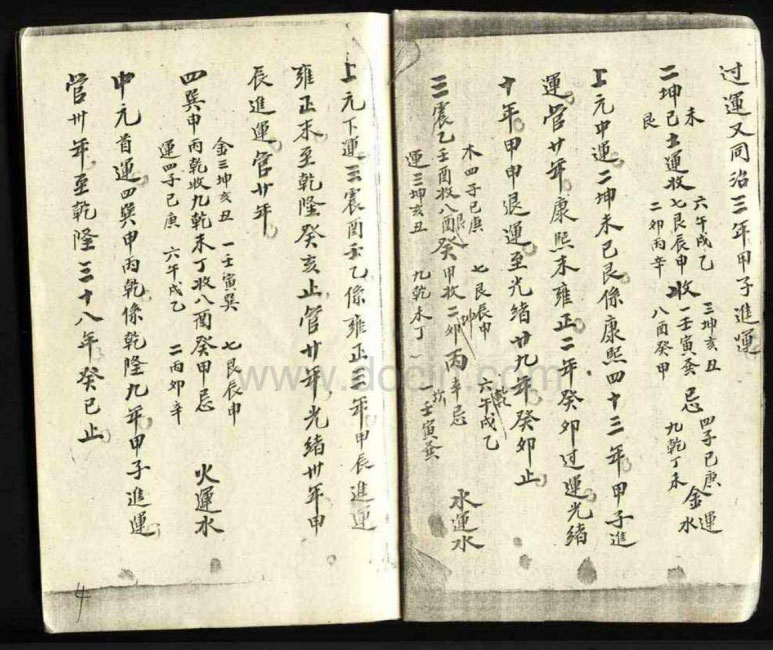 过運又同治三年甲子進運
未
二坤己土運收
艮
六午戌乙
七艮辰申收
二卯丙辛
一壬寅巽
八酉癸甲
三坤亥丑
忌
四子己庚
九乾丁未
金運水
上元中運二坤未己艮係康熙四十三年甲子進
運管廿年康熙末雍正二年癸卯过運光緒
十年甲申退運至光緒廿九年癸卯止
木四子己庚
七艮辰申
六午戌乙
三震乙壬酉收八酉癸甲收二卯丙辛忌
運三坤亥丑
九乾未丁
一壬寅巽
水運水
上元下運三震酉壬乙係雍正三年甲辰進運
雍正末至乾隆癸亥止管廿年光緒卅年甲
辰進運管廿年
金三坤亥丑
一壬寅巽
七艮辰申
四巽甲丙乾收九乾未丁收八酉癸甲忌
運四子己庚
六午戌乙
二丙卯辛
火運水
中元首運四巽甲丙乾係乾隆九年甲子進運
管卅年至乾隆三十八年癸巳止
4
www.docin.com